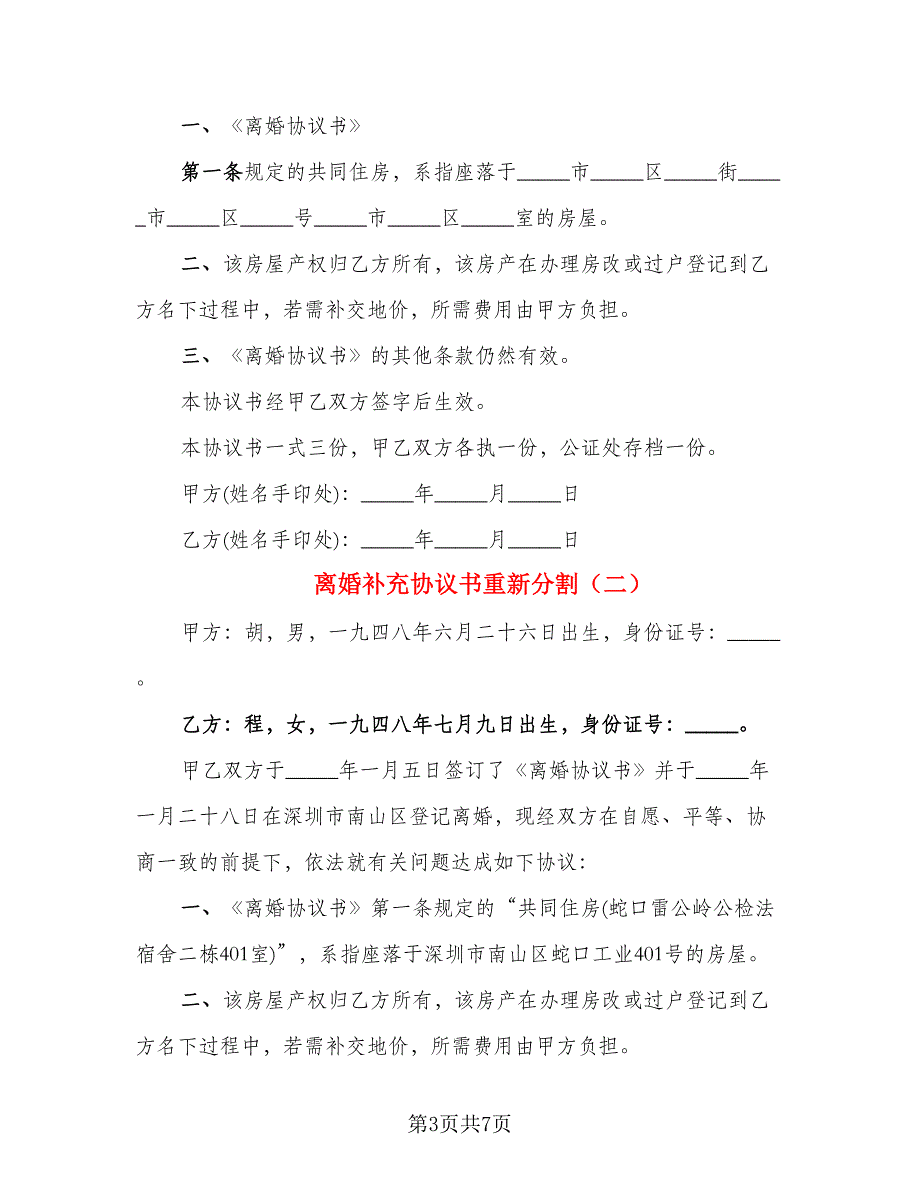 一、《离婚协议书》
第一条规定的共同住房，系指座落于_____市_____区_____街____
_市_____区_____号_____市_____区_____室的房屋。
二、该房屋产权归乙方所有，该房产在办理房改或过户登记到乙
方名下过程中，若需补交地价，所需费用由甲方负担。
三、《离婚协议书》的其他条款仍然有效。
本协议书经甲乙双方签字后生效。
本协议书一式三份，甲乙双方各执一份，公证处存档一份。
甲方(姓名手印处)：_____年_____月_____日
乙方(姓名手印处)：_____年_____月_____日
离婚补充协议书重新分割（二）
甲方：胡，男，一九四八年六月二十六日出生，身份证号：_____
。
乙方：程，女，一九四八年七月九日出生，身份证号：_____。
甲乙双方于_____年一月五日签订了《离婚协议书》并于_____年
一月二十八日在深圳市南山区登记离婚，现经双方在自愿、平等、协
商一致的前提下，依法就有关问题达成如下协议：
一、《离婚协议书》第一条规定的“共同住房(蛇口雷公岭公检法
宿舍二栋401室)”，系指座落于深圳市南山区蛇口工业401号的房屋。
二、该房屋产权归乙方所有，该房产在办理房改或过户登记到乙
方名下过程中，若需补交地价，所需费用由甲方负担。
第3页共7页